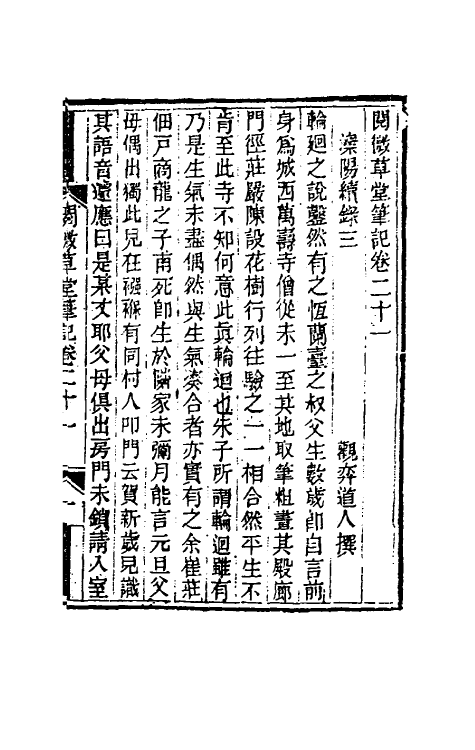 閱微草堂筆記卷二十一
灤陽續錄三　觀弈道人撰
輪迴之說鑿然有之恆蘭臺之叔父生數歲卽自言前
身爲城西萬壽寺僧從未一至其地取筆粗畫其殿廊
門徑莊嚴陳設花樹行列往驗之一一相合然平生不
肯至此寺不知何意此眞輪迴也朱子所謂輪迴雖有
乃是生氣未盡偶然與生氣湊合者亦實有之余崔莊
佃戶商龍之子甫死卽生於隣家未彌月能言元旦父
母偶出獨此兒在襁褓有同村人叩門云賀新歲兒識
其語音遽應曰是某丈耶父母俱出房門未鎖請入室
閱微草堂筆記卷二十一　一